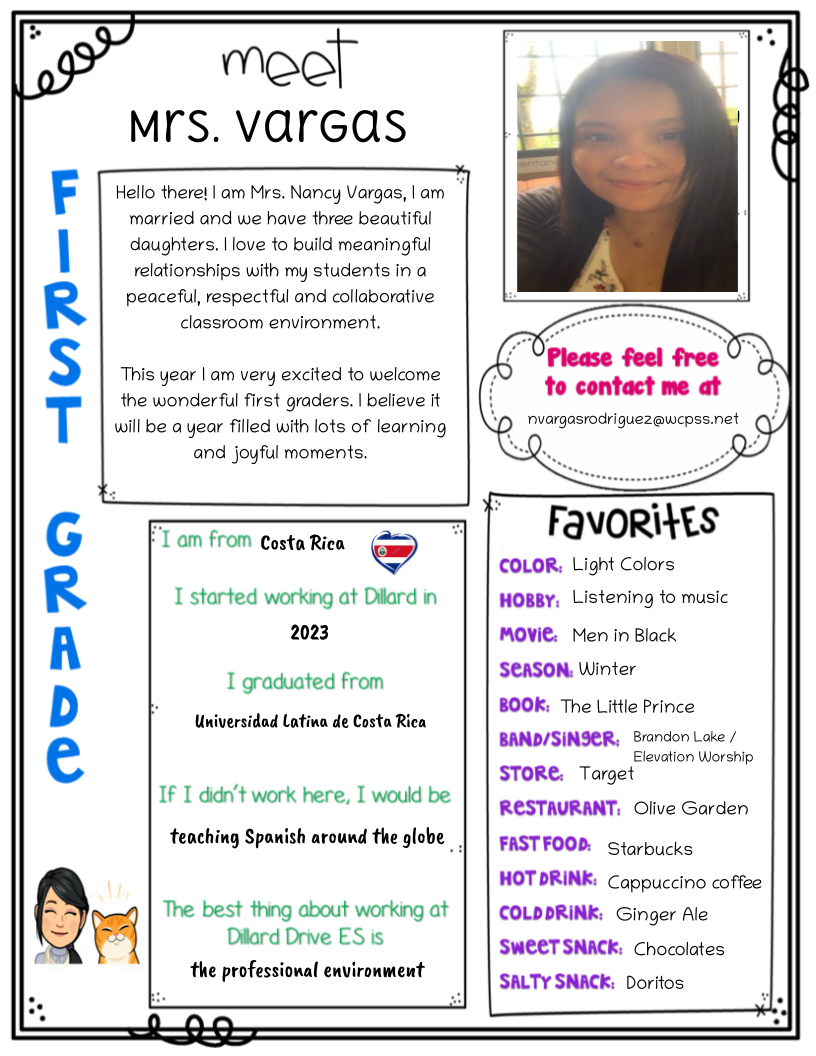 meet
Mrs. Vargas
FIRST GRADE
Hello there! I am Mrs. Nancy Vargas, I am
married and we have three beautiful
daughters. I love to build meaningful
relationships with my students in a
peaceful, respectful and collaborative
classroom environment.
This year I am very excited to welcome
the wonderful first graders. I believe it
will be a year filled with lots of learning
and joyful moments.
Please feel free
to contact me at
nvargasrodriguez@wcpss.net
I am from Costa Rica
I started working at Dillard in
2023
I graduated from
Universidad Latina de Costa Rica
If I didn't work here, I would be
teaching Spanish around the globe
The best thing about working at
Dillard Drive ES is
the professional environment
FAVORITES
COLOR: Light Colors
HOBBY: Listening to music
MOVIE: Men in Black
SEASON: Winter
BOOK: The Little Prince
BAND/SINGER: Brandon Lake /
Elevation Worship
STORE: Target
RESTAURANT: Olive Garden
FAST FOOD: Starbucks
HOT DRINK: Cappuccino coffee
COLD DRINK: Ginger Ale
SWEET SNACK: Chocolates
SALTY SNACK: Doritos